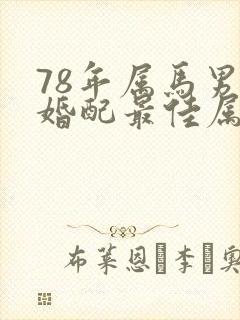 78年属馬男
婚配最佳属
布莱恩·李·奥